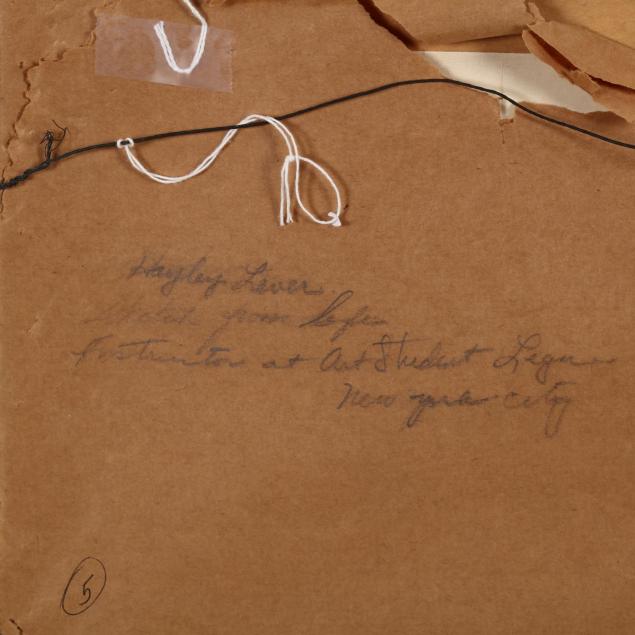 Hayley Lever
Sketch from life
Instructor at Art Student Legue
New York City
5